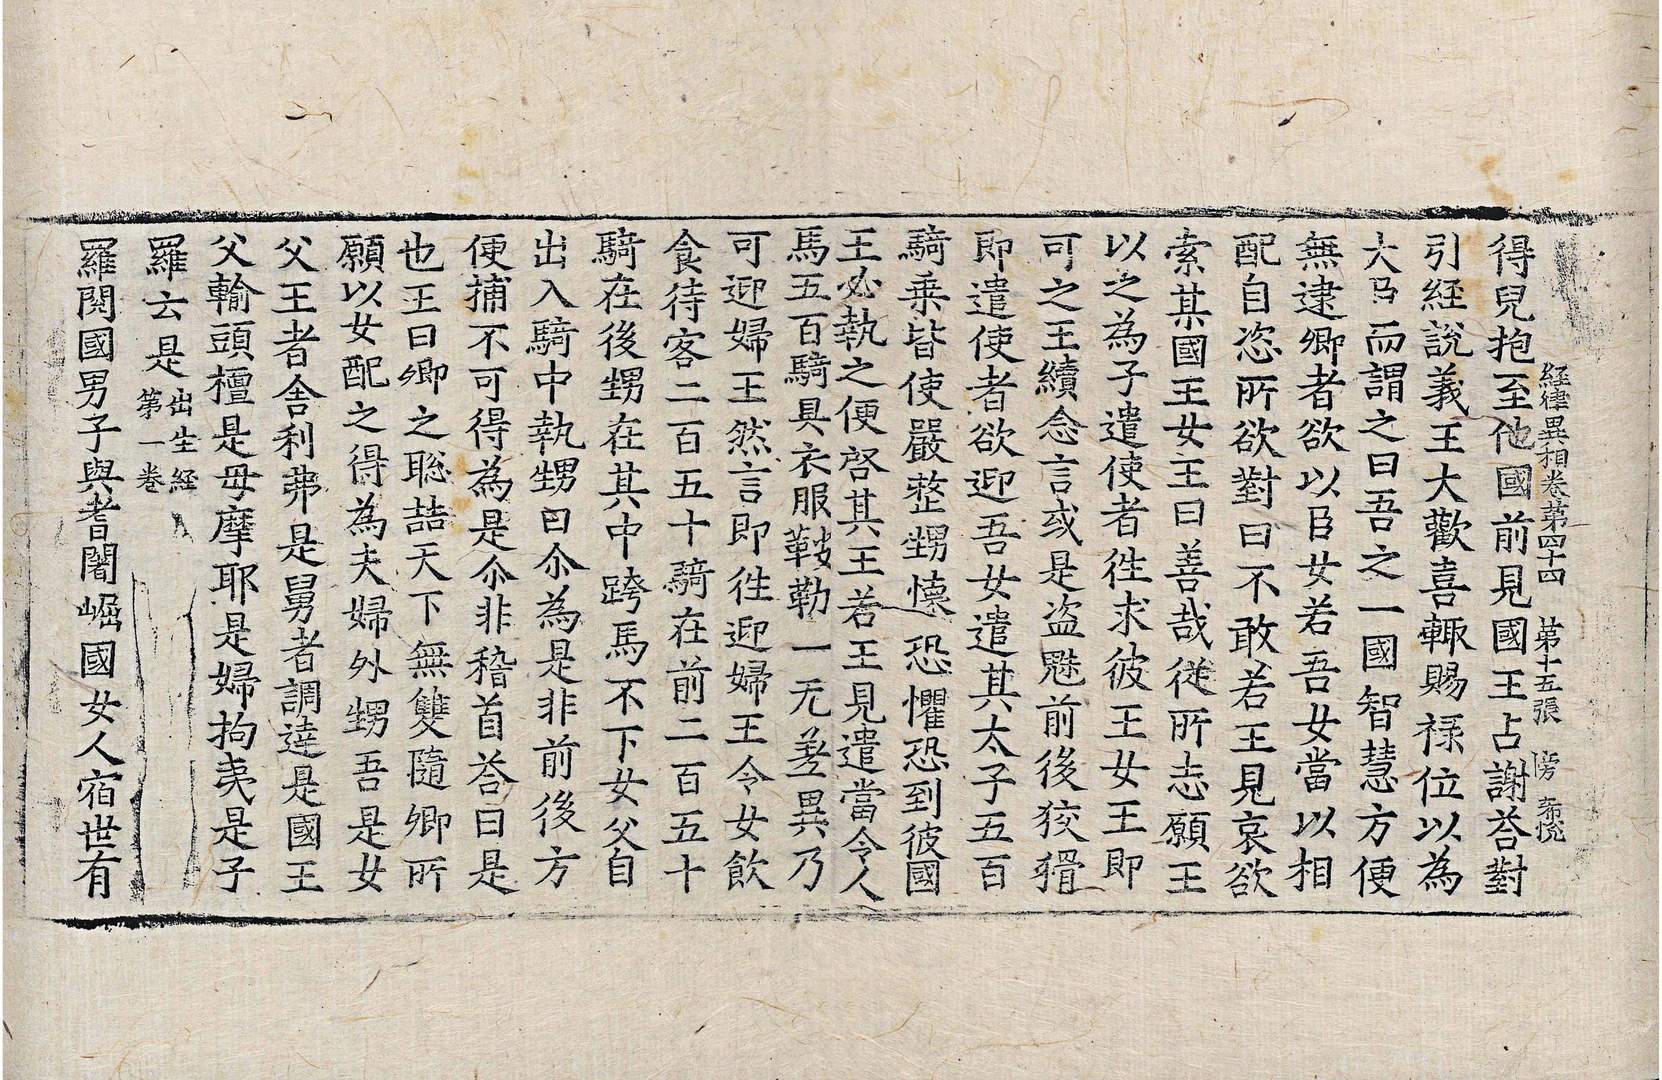 経律異相卷第四十四 第十五張 傍
得兒抱至他國前見國王占謝荅對
引經說義王大歡喜輙賜禄位以為
大臣而謂之曰吾之一國智慧方便
無逮卿者欲以臣女若吾女當以相
配自恣所欲對曰不敢若王見哀欲
索某國王女王曰善哉從所志願王
以之為子遣使者徃求彼王女王即
可之王續念言或是盗魁前後狡猾
即遣使者欲迎吾女遣其太子五百
騎乗皆使嚴整甥懐恐懼恐到彼國
王必執之便啓其王若王見遣當令人
馬五百騎具衣服鞍勒一无差異乃
可迎婦王然言即徃迎婦王令女飲
食待客二百五十騎在前二百五十
騎在後甥在其中跨馬不下女父自
出入騎中執甥曰尒為是非前後方
便捕不可得為是尒非稽首荅曰是
也王曰卿之聡喆天下無雙隨卿所
願以女配之得為夫婦外甥吾是女
父王者舎利弗是舅者調達是國王
父輸頭檀是母摩耶是婦拘夷是子
羅云是 出生経第一卷
羅閱國男子與耆闍崛國女人宿世有